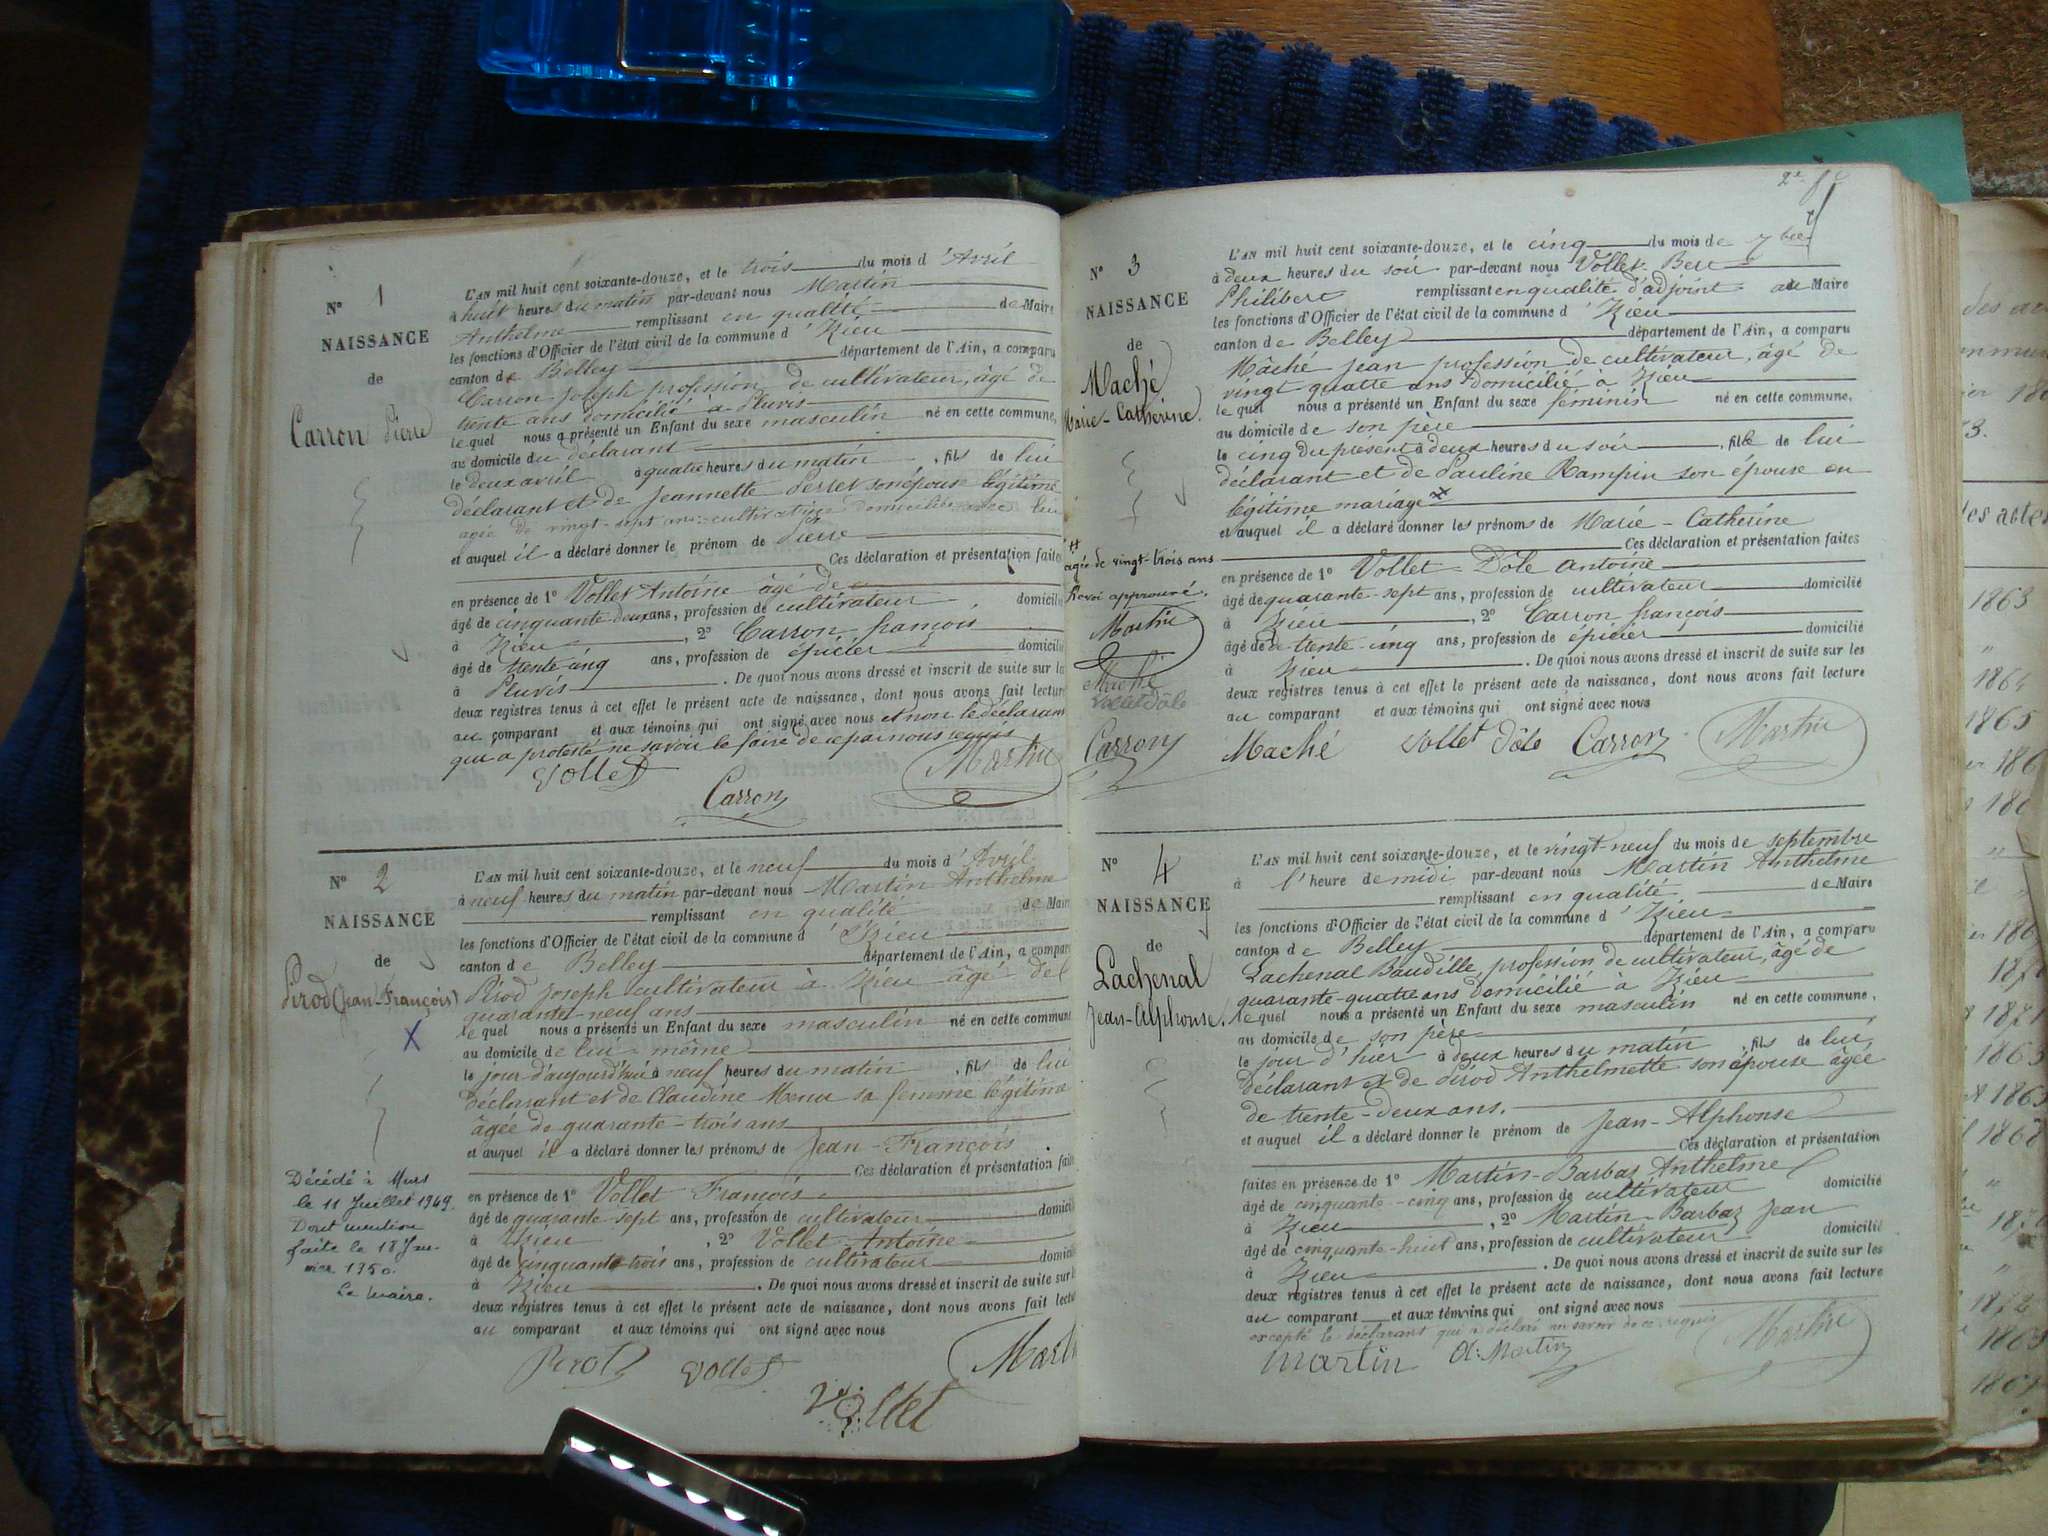 N° 1
NAISSANCE
de
Carron Pierre
L'AN mil huit cent soixante-douze, et le trois du mois d'Avril
à huit heures du matin par-devant nous Martin
Anthelme remplissant en qualité de Maire
les fonctions d'Officier de l'état civil de la commune d'Izieu
canton de Belley département de l'Ain, a comparu
Carron Joseph profession de cultivateur, âgé de
trente ans domicilié à Pluvis
lequel nous a présenté un Enfant du sexe masculin né en cette commune,
au domicile du déclarant
le deux avril à quatre heures du matin, fils de lui
déclarant et de Jeannette Perret son épouse légitime
agée de vingt-sept ans cultivatrice domiciliée avec lui
et auquel il a déclaré donner le prénom de Pierre
Ces déclaration et présentation faites
en présence de 1° Vollet Antoine âgé de
âgé de cinquante deux ans, profession de cultivateur domicilié
à Izieu, 2° Carron françois
âgé de trente-cinq ans, profession de épicier domicilié
à Pluvis. De quoi nous avons dressé et inscrit de suite sur les
deux registres tenus à cet effet le présent acte de naissance, dont nous avons fait lecture
au comparant et aux témoins qui ont signé avec nous et non le déclarant
qui a protesté ne savoir le faire de ce par nous requis
Vollet Carron Martin
N° 2
NAISSANCE
de
Pirod (Jean-François)
X
Décédé à Murs
le 11 Juillet 1949
Dont mention
faite le 18 Jan-
vier 1950.
Le Maire.
L'AN mil huit cent soixante-douze, et le neuf du mois d'Avril
à neuf heures du matin par-devant nous Martin Anthelme
remplissant en qualité de Maire
les fonctions d'Officier de l'état civil de la commune d'Izieu
canton de Belley département de l'Ain, a comparu
Pirod Joseph cultivateur à Izieu âgé de
quarante-neuf ans
lequel nous a présenté un Enfant du sexe masculin né en cette commune
au domicile de lui-même
le jour d'aujourd'hui à neuf heures du matin, fils de lui
déclarant et de Claudine sa femme légitime
âgée de quarante-trois ans
et auquel il a déclaré donner les prénoms de Jean-François
Ces déclaration et présentation faites
en présence de 1° Vollet François
âgé de quarante sept ans, profession de cultivateur domicilié
à Izieu, 2° Vollet Antoine
âgé de cinquante trois ans, profession de cultivateur domicilié
à Izieu. De quoi nous avons dressé et inscrit de suite sur les
deux registres tenus à cet effet le présent acte de naissance, dont nous avons fait lecture
au comparant et aux témoins qui ont signé avec nous
Pirod Vollet Martin
Vollet
N° 3
NAISSANCE
de
Maché
Marie-Catherine.
agée de vingt-trois ans
Renvoi approuvé.
Martin
Maché
Vollet Dôle
Carron
L'AN mil huit cent soixante-douze, et le cinq du mois de 7bre
à deux heures du soir par-devant nous Vollet Bert
Philibert remplissant en qualité d'adjoint au Maire
les fonctions d'Officier de l'état civil de la commune d'Izieu
canton de Belley département de l'Ain, a comparu
Mâché Jean profession de cultivateur, âgé de
vingt quatre ans domicilié à Izieu
lequel nous a présenté un Enfant du sexe féminin né en cette commune,
au domicile de son père
le cinq du présent à deux heures du soir, fille de lui
déclarant et de Pauline Rampin son épouse en
légitime mariage
et auquel il a déclaré donner les prénoms de Marie-Catherine
Ces déclaration et présentation faites
en présence de 1° Vollet-Dôle Antoine
âgé de quarante-sept ans, profession de cultivateur domicilié
à Izieu, 2° Carron françois
âgé de trente-cinq ans, profession de épicier domicilié
à Izieu. De quoi nous avons dressé et inscrit de suite sur les
deux registres tenus à cet effet le présent acte de naissance, dont nous avons fait lecture
au comparant et aux témoins qui ont signé avec nous
Maché Vollet Dôle Carron Martin
N° 4
NAISSANCE
de
Lachenal
Jean-Alphonse.
L'AN mil huit cent soixante-douze, et le vingt neuf du mois de septembre
à l'heure de midi par-devant nous Martin Anthelme
remplissant en qualité de Maire
les fonctions d'Officier de l'état civil de la commune d'Izieu
canton de Belley département de l'Ain, a comparu
Lachenal Baudille, profession de cultivateur, âgé de
quarante-quatre ans domicilié à Izieu
lequel nous a présenté un Enfant du sexe masculin né en cette commune,
au domicile de son père
le jour d'hier à deux heures du matin, fils de lui,
déclarant et de Pirod Anthelmette son épouse âgée
de trente-deux ans.
et auquel il a déclaré donner le prénom de Jean-Alphonse
Ces déclaration et présentation
faites en présence de 1° Martin-Barbaz Anthelme
âgé de cinquante-cinq ans, profession de cultivateur domicilié
à Izieu, 2° Martin-Barbaz Jean
âgé de cinquante-huit ans, profession de cultivateur domicilié
à Izieu. De quoi nous avons dressé et inscrit de suite sur les
deux registres tenus à cet effet le présent acte de naissance, dont nous avons fait lecture
au comparant et aux témoins qui ont signé avec nous
excepté le déclarant qui a déclaré ne savoir de ce requis
Martin A. Martin Martin
1863
1864
1865
1871
1863
1863
1868
1872